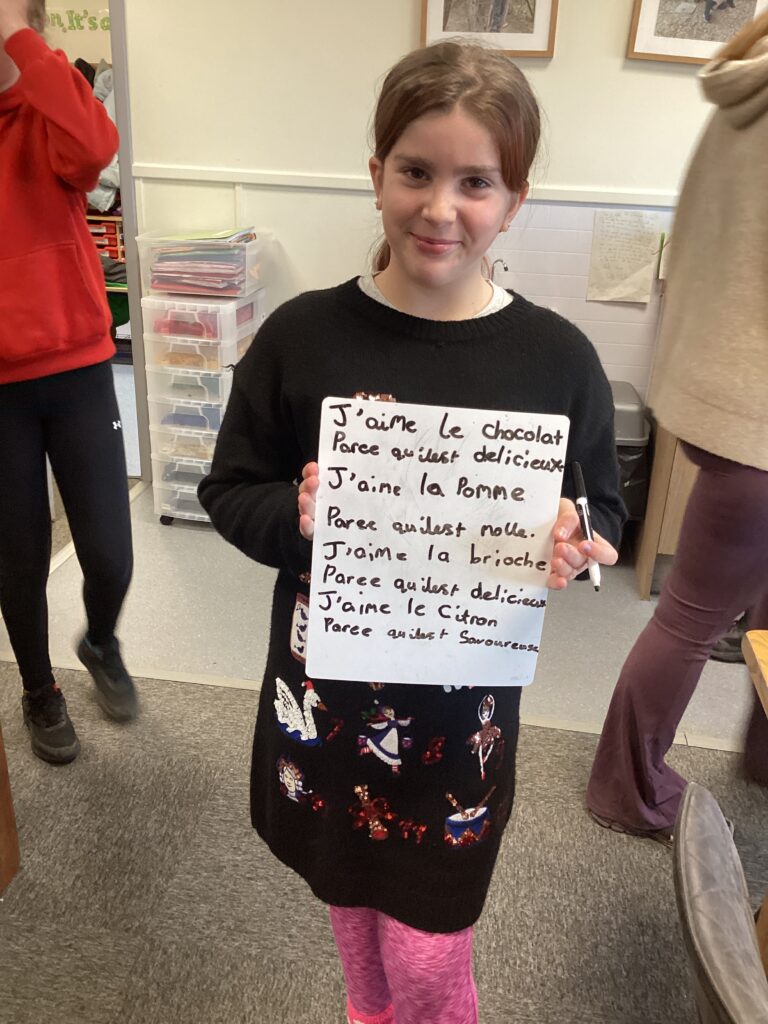 on, It's a
J'aime le chocolat
Paree qu'ilest delicieux
J'aine la Pomme
Paree qu'ilest molle.
J'aime la brioche
Paree qu'ilest delicieux
J'aime le Citron
Paree qu'ilest Savoureuse